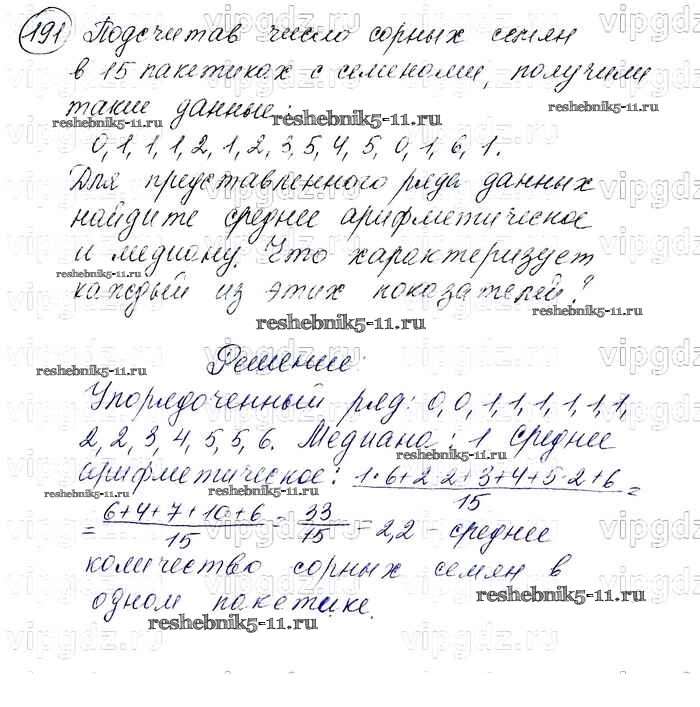 191 Подсчитав число сорных семян
в 15 пакетиках с семенами, получили
такие данные:
0, 1, 1, 1, 2, 1, 2, 3, 5, 4, 5, 0, 1, 6, 1.
Для представленного ряда данных
найдите среднее арифметическое
и медиану. Что характеризует
каждый из этих показателей?
Решение.
Упорядоченный ряд: 0, 0, 1, 1, 1, 1, 1, 1,
2, 2, 3, 4, 5, 5, 6. Медиана: 1 Среднее
арифметическое: (1·6+2·2+3+4+5·2+6)/15 =
= (6+4+7+10+6)/15 = 33/15 = 2,2 - среднее
количество сорных семян в
одном пакетике.
reshebnik5-11.ru
vipgdz.ru